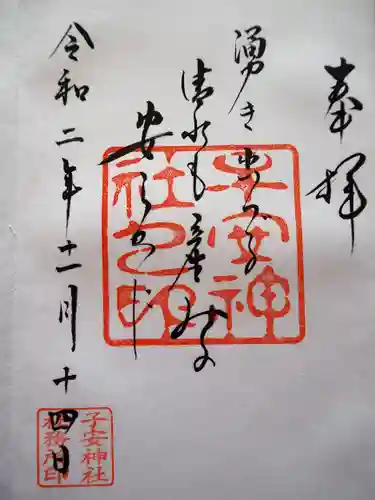 奉拝
湧き出づる
清水も産湯の
安らかに
令和二年十一月十四日
子安神社之印
子安神社
社務所印